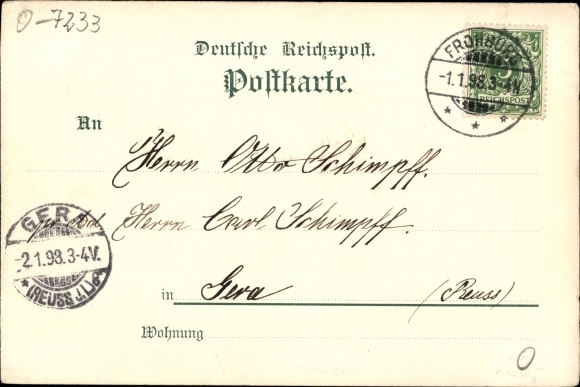 O-7233
Deutsche Reichspost.
Postkarte.
FROHBURG
-1.1.98.3-4V.
5
REICHSPOST
An
Herrn Otto Schimpff.
Herrn Carl Schimpff.
GERA
-2.1.98.3-4V.
(REUSS J.L.)
in Gera (Reuss)
Wohnung